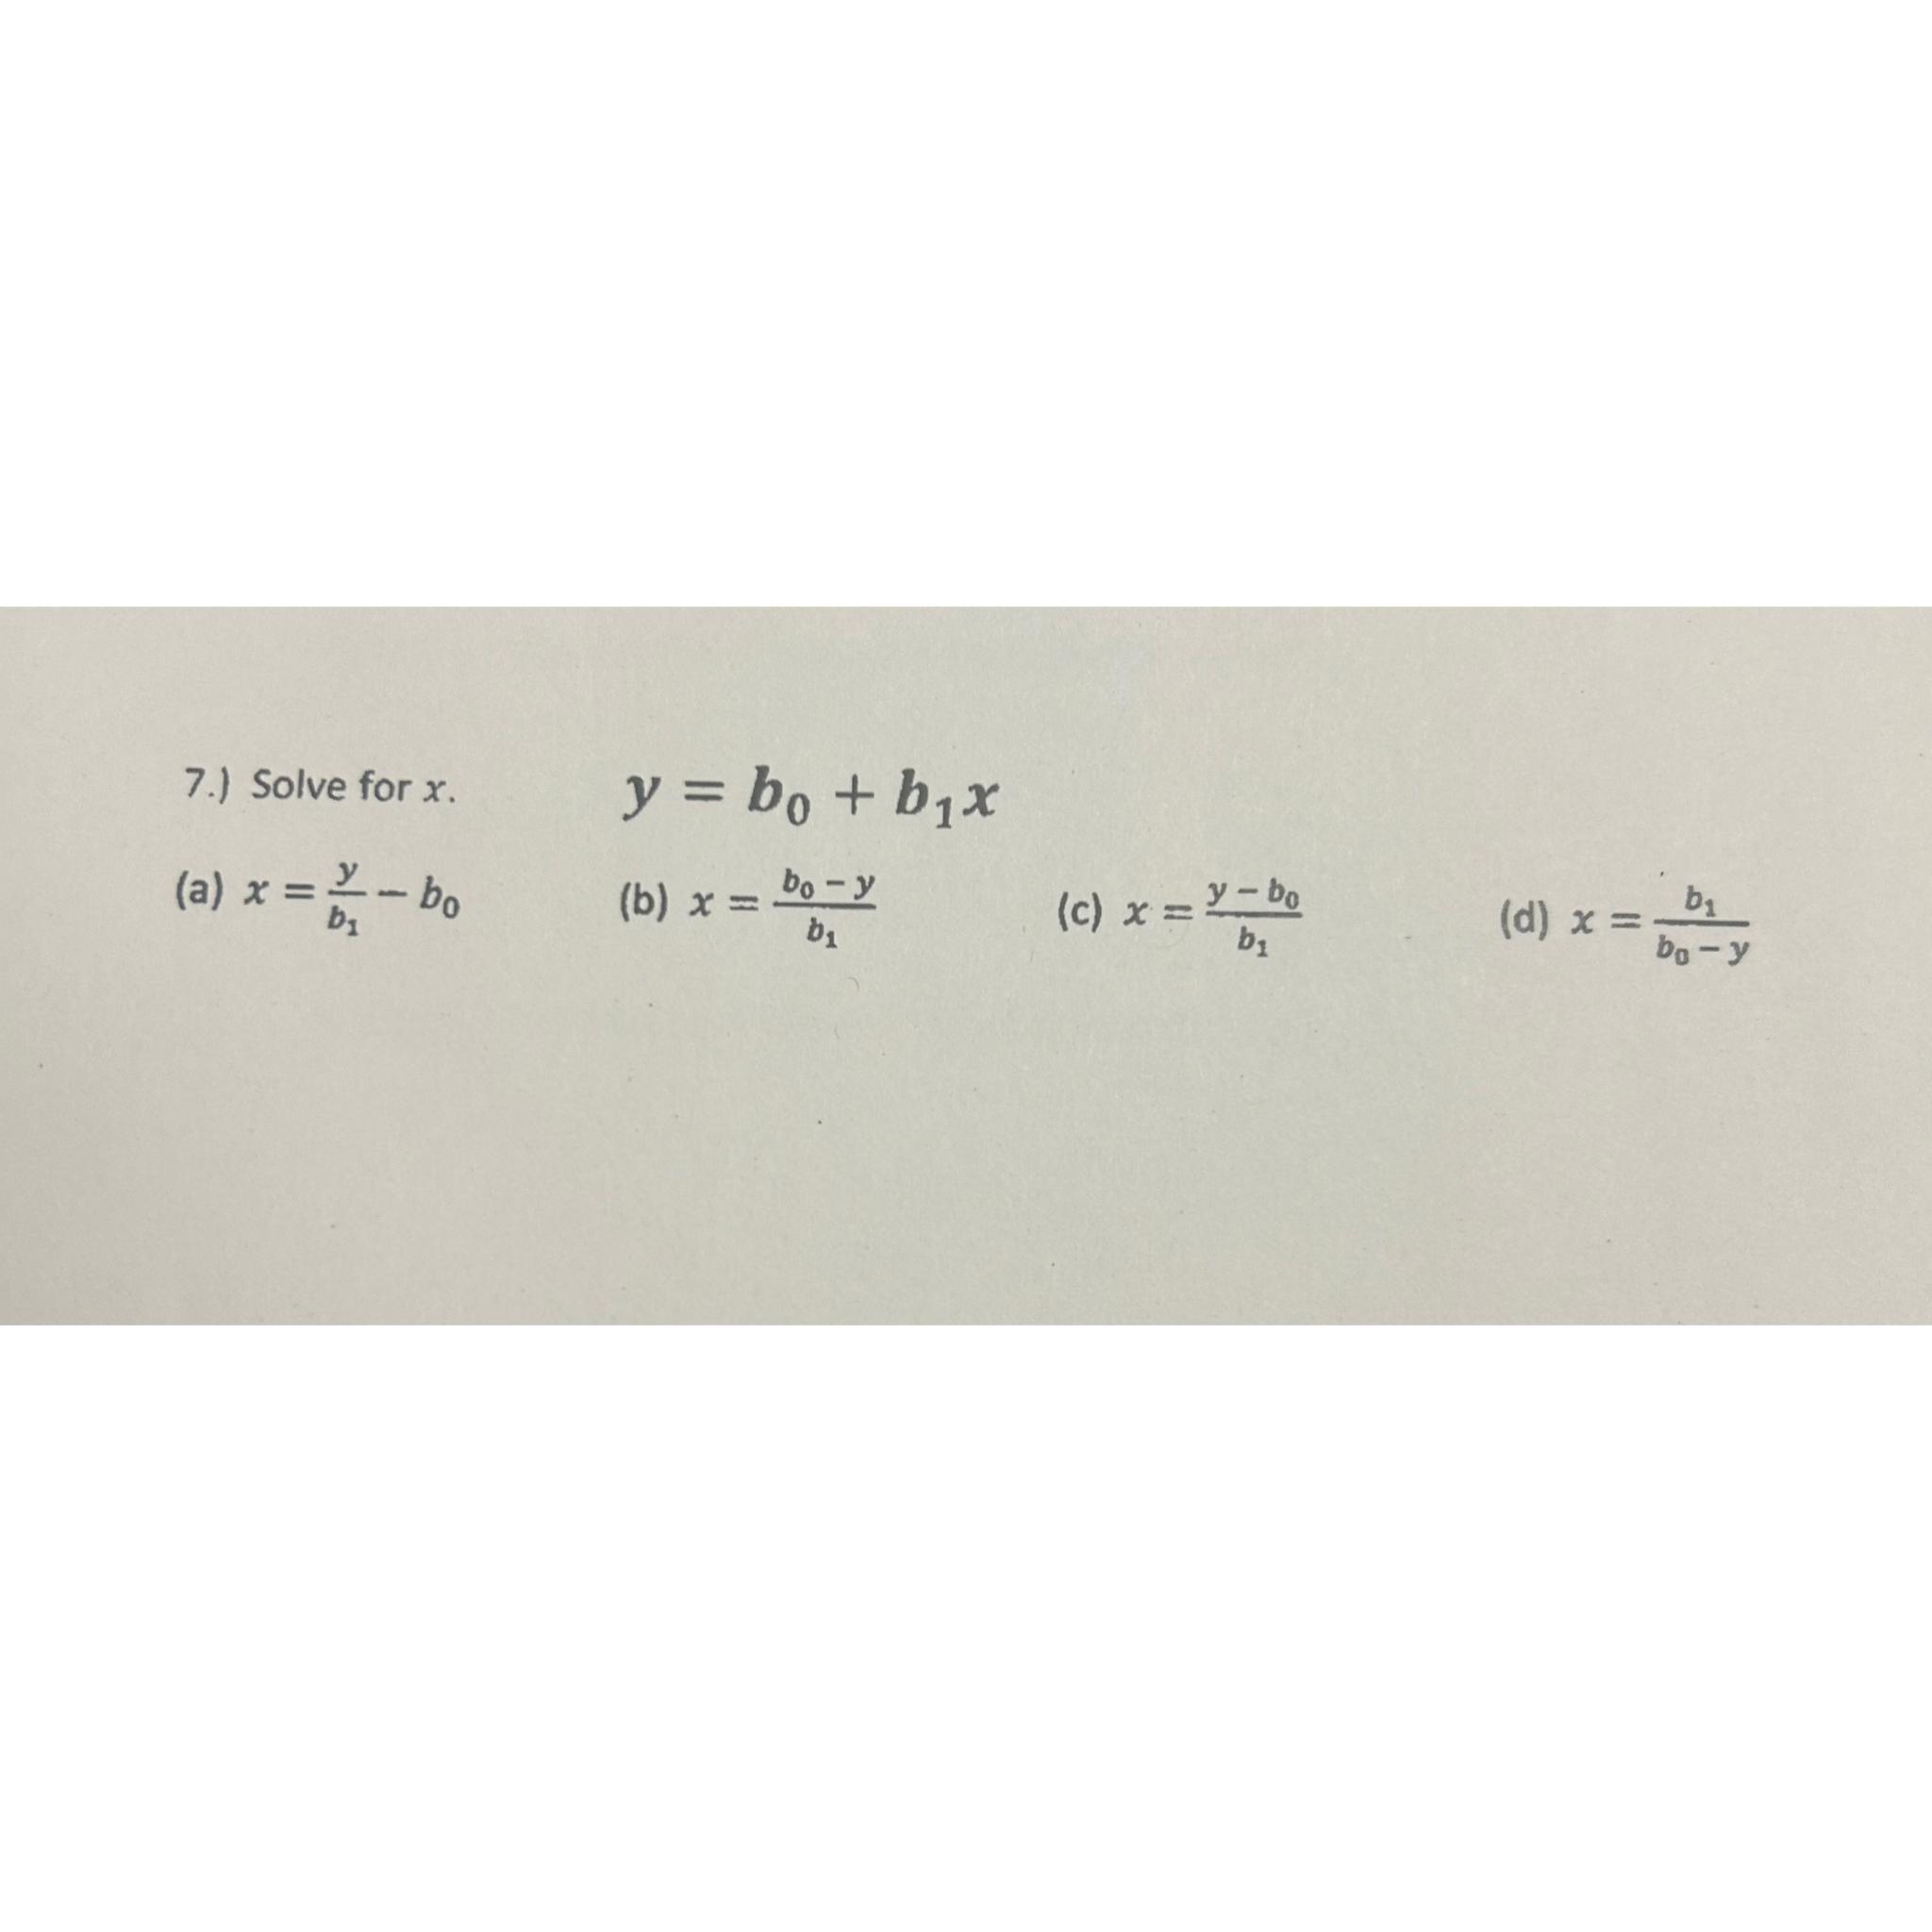 7.) Solve for x. y = b₀ + b₁x
(a) x = y/b₁ − b₀ (b) x = (b₀ − y)/b₁ (c) x = (y − b₀)/b₁ (d) x = b₁/(b₀ − y)